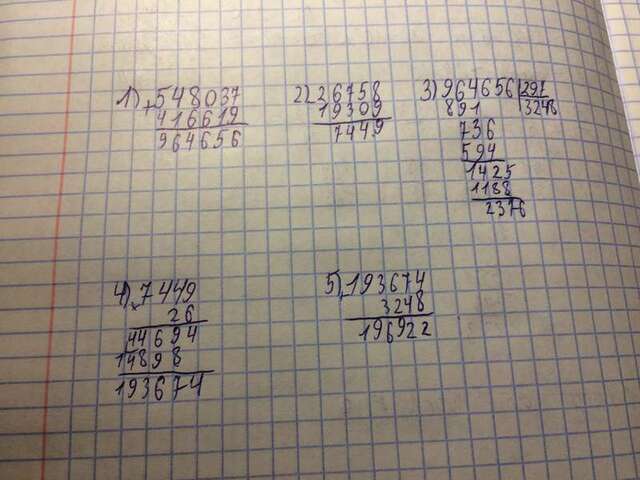 1) + 548037
416619
964656
2) - 26758
19309
7449
3) 964656 | 297
891 3248
736
594
1425
1188
2376
4) × 7449
26
44694
14898
193674
5) 193674
3248
196922